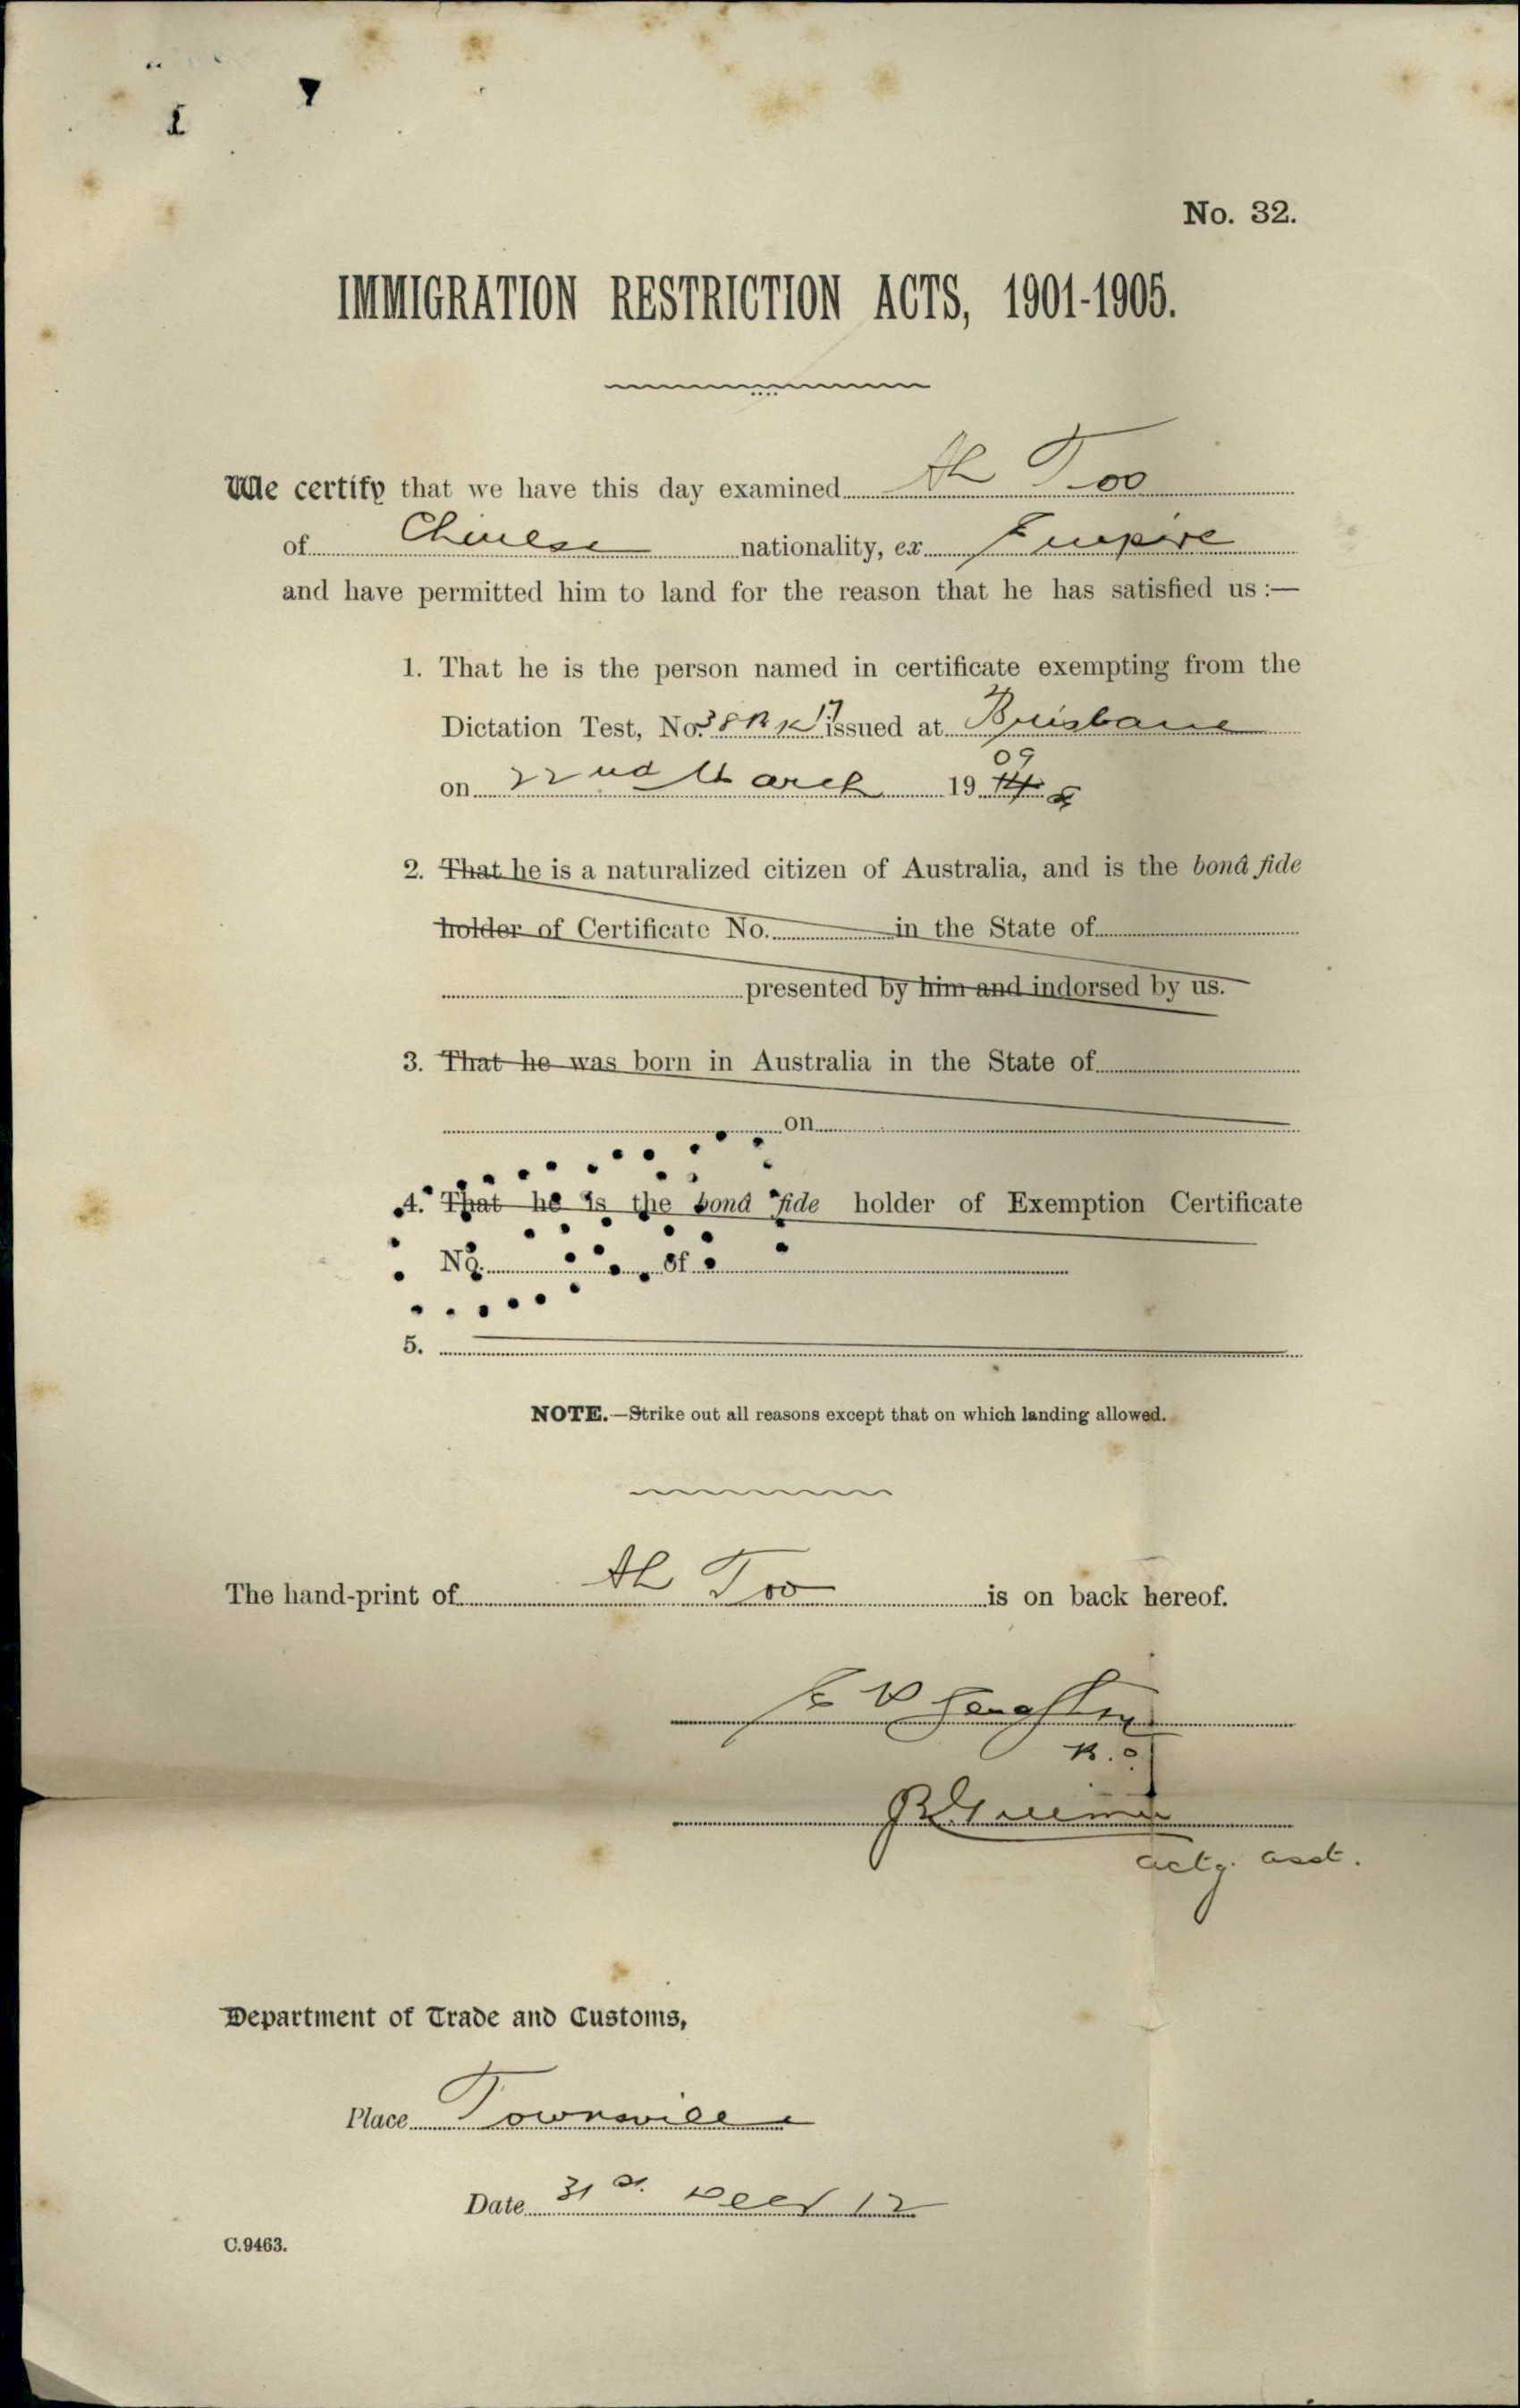 No. 32.
IMMIGRATION RESTRICTION ACTS, 1901-1905.
We certify that we have this day examined Ah Too
of Chinese nationality, ex Empire
and have permitted him to land for the reason that he has satisfied us :—
1. That he is the person named in certificate exempting from the
Dictation Test, No. 38 Bk 17 issued at Brisbane
09
on 22nd March 19
2. That he is a naturalized citizen of Australia, and is the bonâ fide
holder of Certificate No. in the State of
presented by him and indorsed by us.
3. That he was born in Australia in the State of
on
4. That he is the bonâ fide holder of Exemption Certificate
No. of
5.
NOTE.—Strike out all reasons except that on which landing allowed.
The hand-print of Ah Too is on back hereof.
actg. asst.
Department of Trade and Customs,
Place Townsville
Date 31st. Decr 12
C.9463.